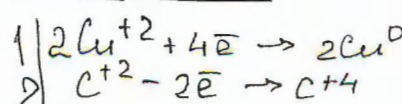 1| 2Cu⁺² + 4ē → 2Cu⁰
2| C⁺² - 2ē → C⁺⁴